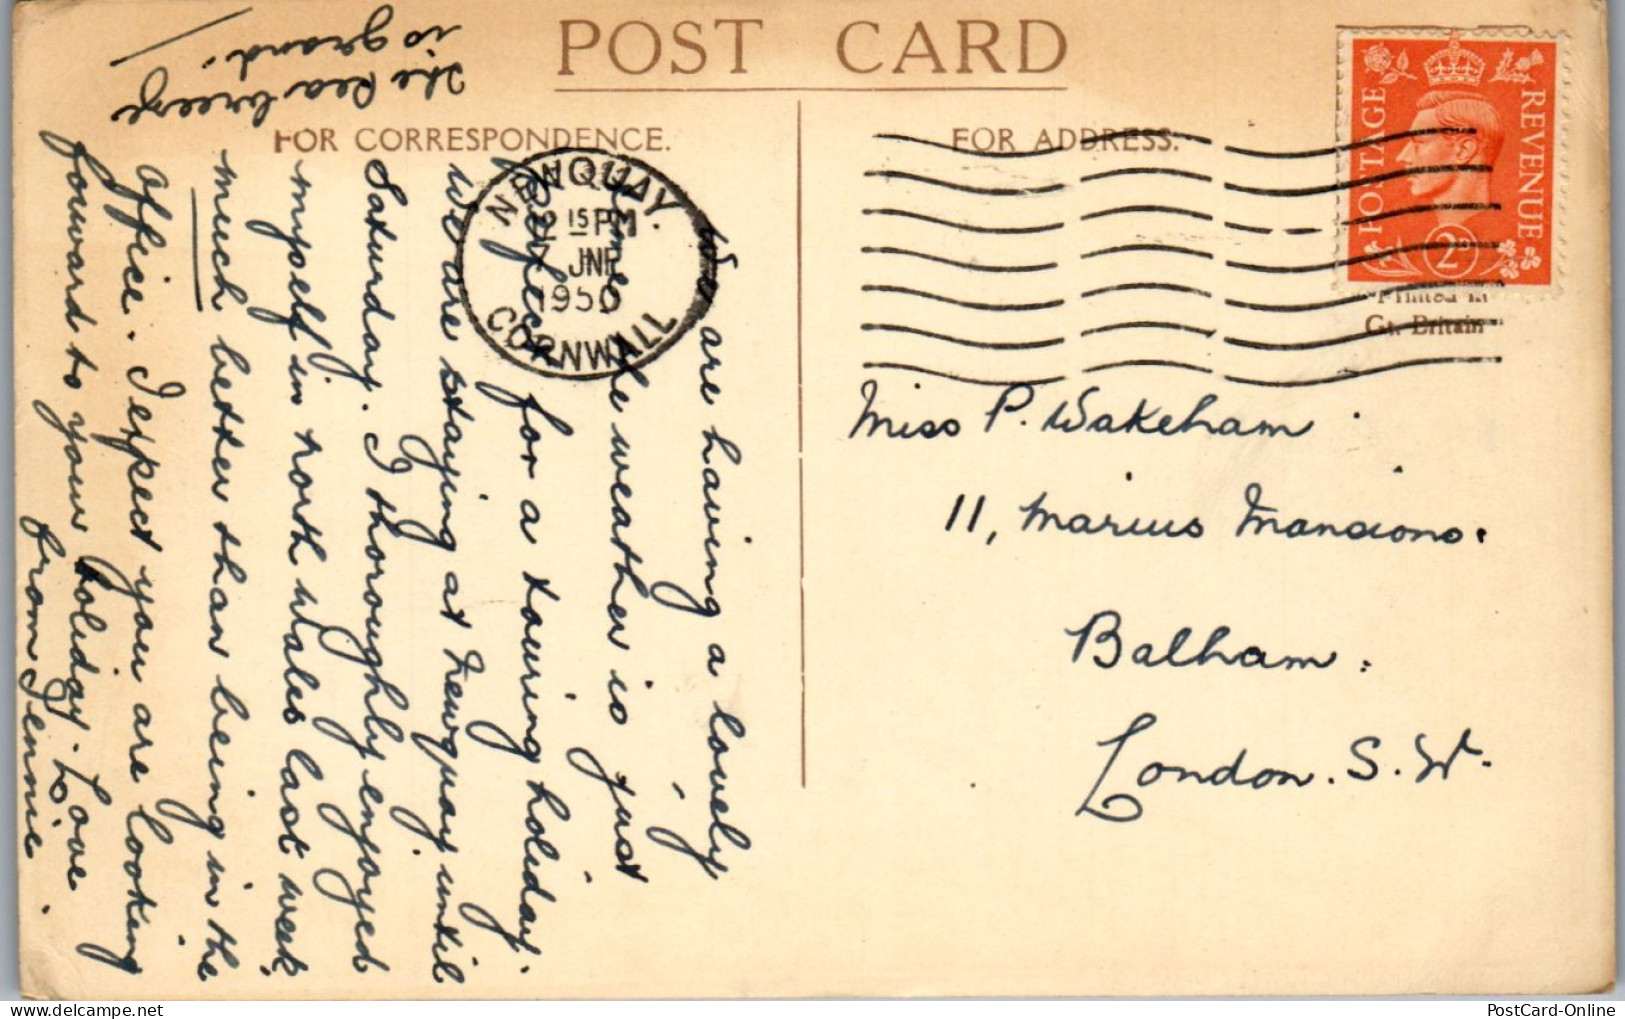 POST CARD
FOR CORRESPONDENCE.
FOR ADDRESS.
POSTAGE REVENUE
2D
Printed in
Gt. Britain
NEWQUAY
2 15 PM
7 JNE
1950
CORNWALL
We are having a lovely
time, the weather is just
perfect for a touring holiday.
We are staying at Newquay until
Saturday. I thoroughly enjoyed
myself in North Wales last week,
much better than being in the
office. I expect you are looking
forward to your holiday. Love
from Jennie.
The sea breeze
is grand.
Miss P. Wakeham.
11, Marius Mansions.
Balham.
London. S.W.
PostCard-Online